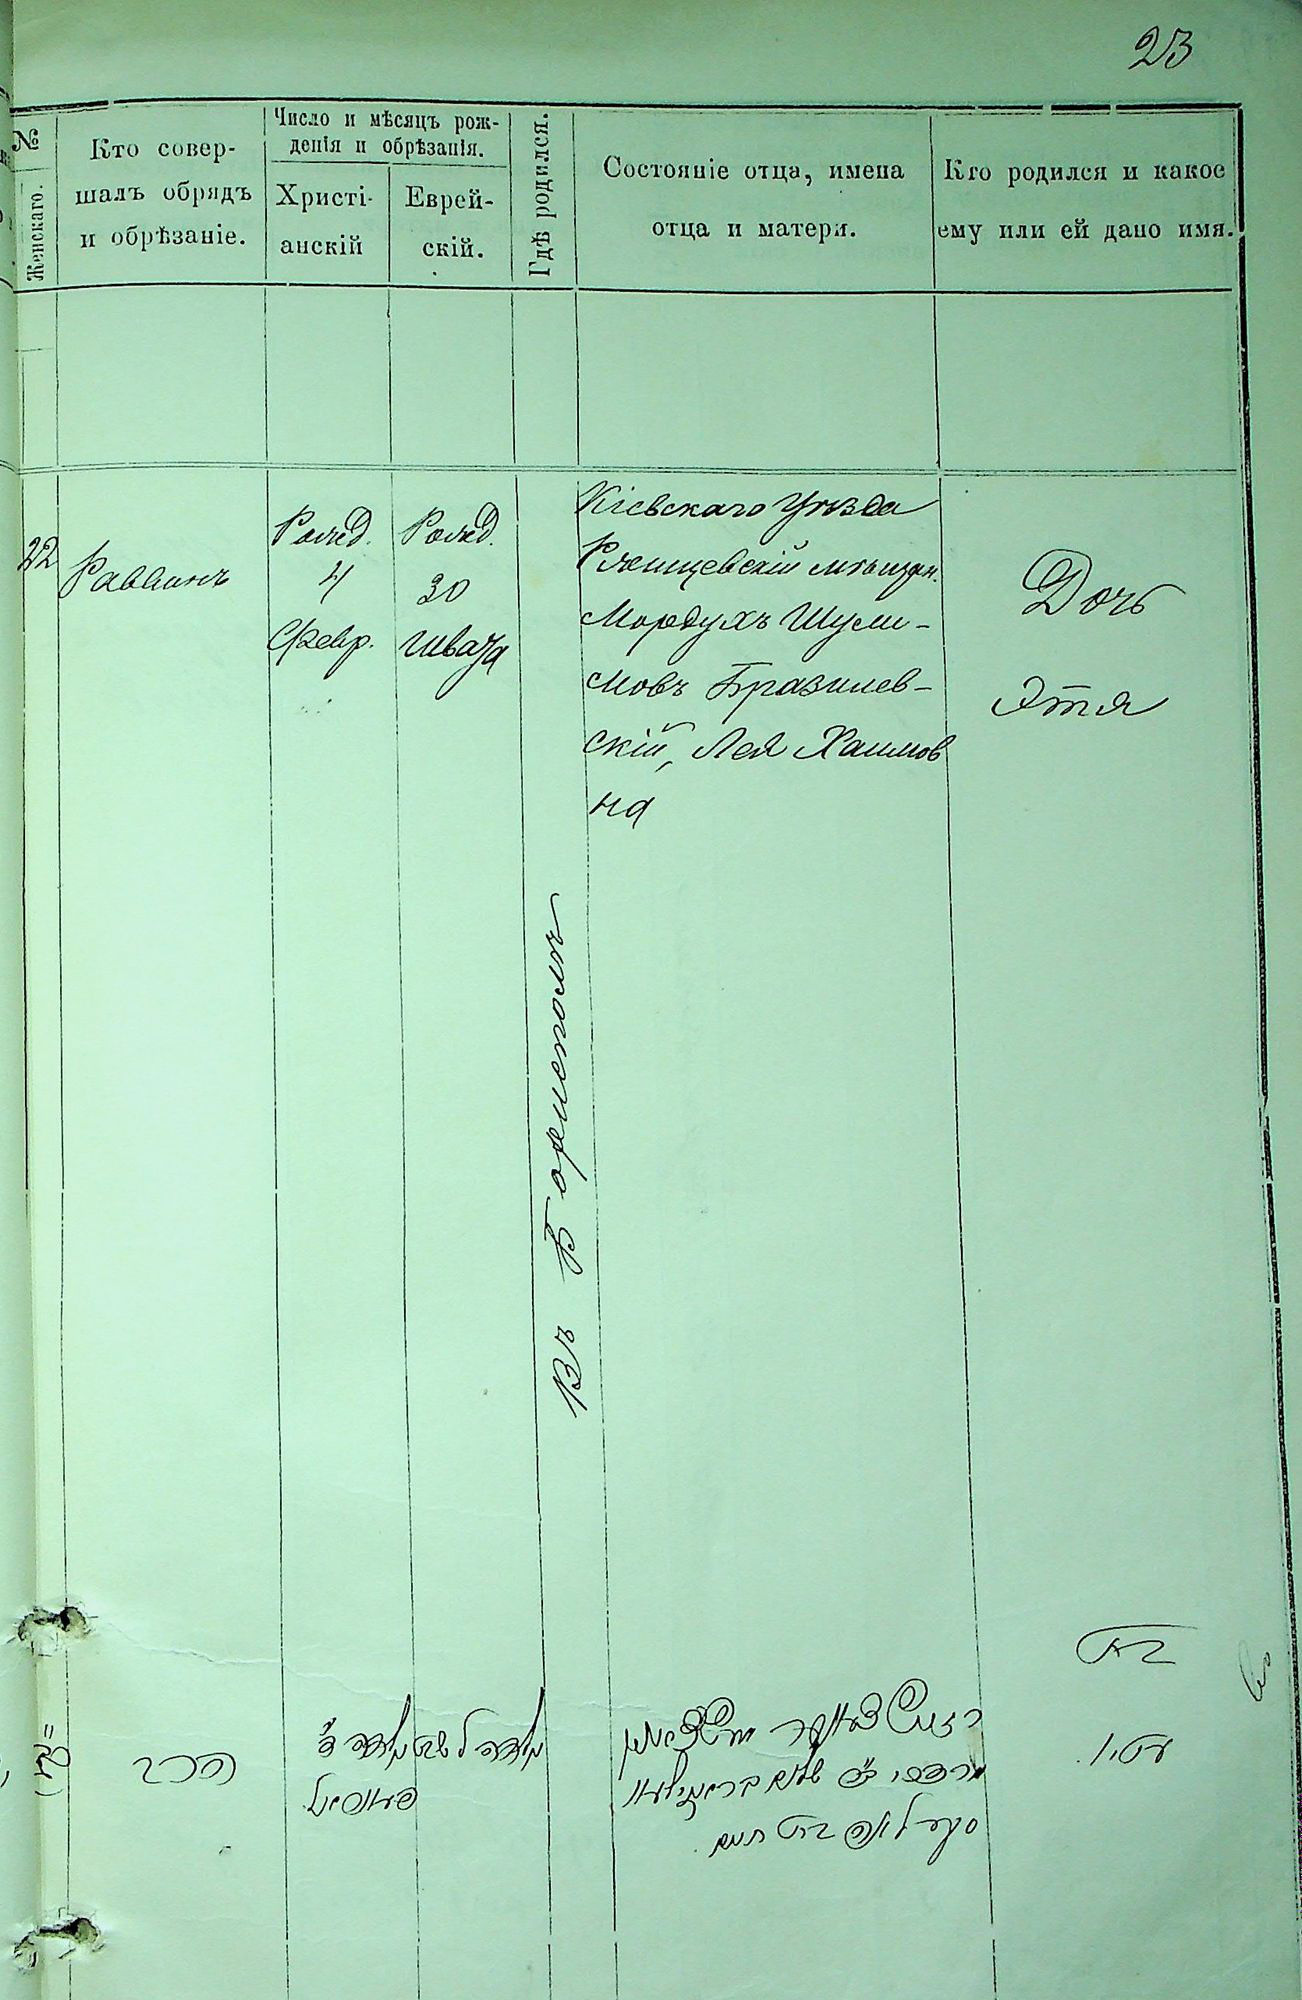 23
№
Женскаго.
Кто совер-
шалъ обрядъ
и обрѣзаніе.
Число и мѣсяцъ рож-
денія и обрѣзанія.
Христі-
анскій
Еврей-
скій.
Гдѣ родился.
Состояніе отца, имена
отца и матери.
Кто родился и какое
ему или ей дано имя.
22
Раввинъ
Рожд.
4
Февр.
Рожд.
30
Швата
Въ Борисполѣ
Кіевскаго Уѣзда
Ржищевскій мѣщан.
Мордухъ Шули-
мовъ Бразилев-
скій, Лея Хаимов
на
Дочь
Этя
בת
עטיו
הרב